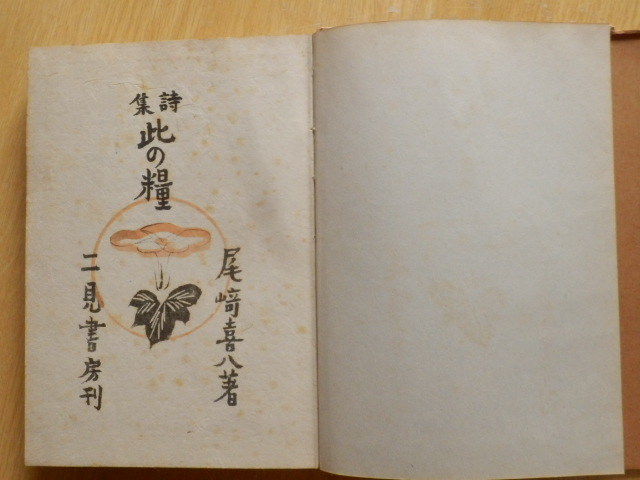 詩集
此の糧
尾﨑喜八著
二見書房刊